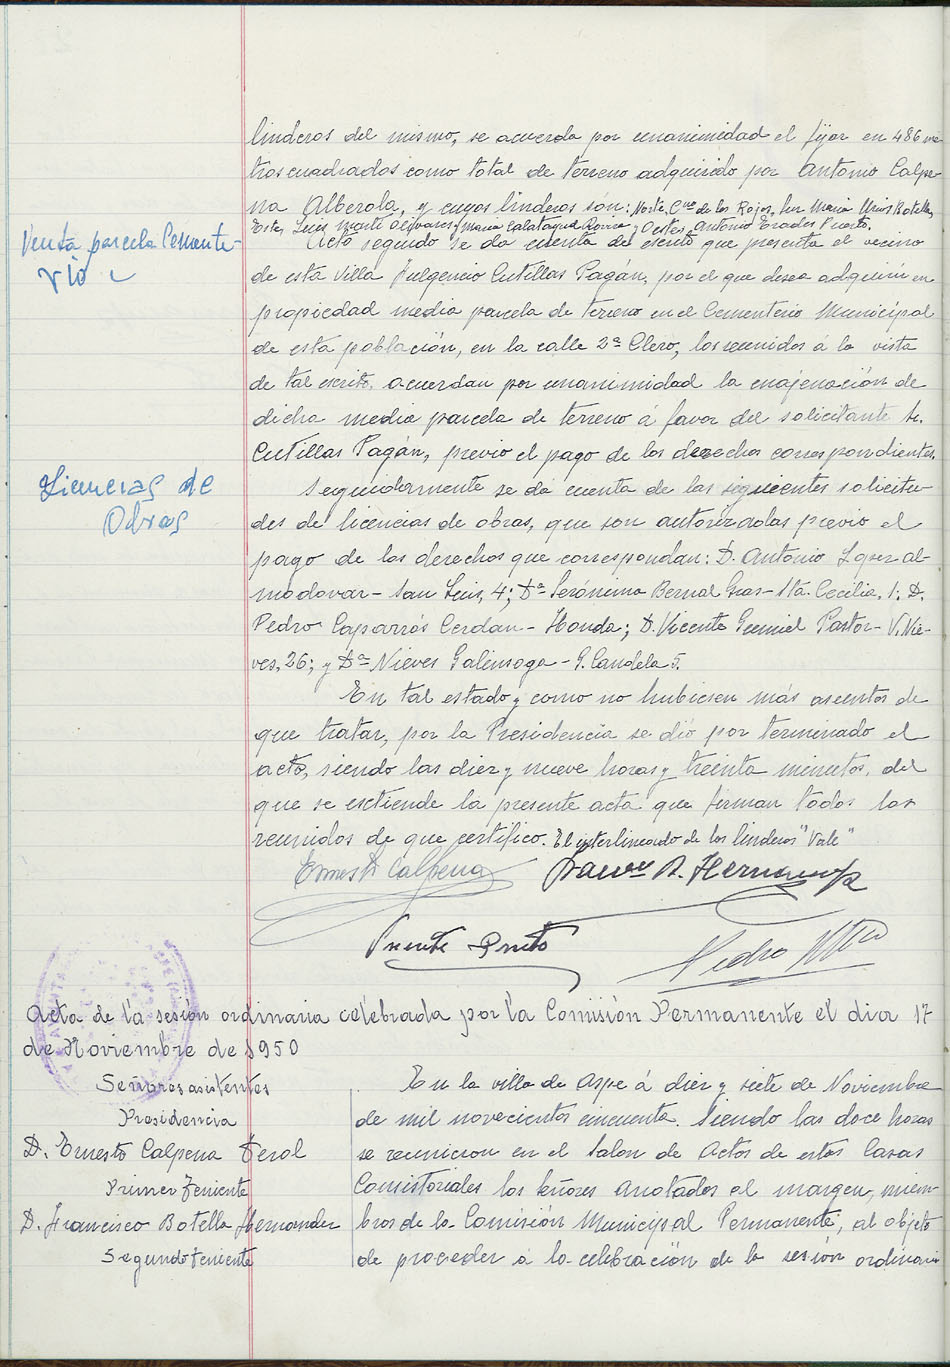 linderos del mismo, se acuerda por unanimidad el fijar en 486 me
tros cuadrados como total de terreno adquirido por Antonio Calpe
na Alberola, y cuyos linderos són: Norte, C/ne de los Rojas, Sur Maria Urios Botella,
Este, Luis Martí Olivares y Maria Calatayud Rovira y Oeste, Antonio Erades Puerto.
Venta parcela Cemente-
rio
Acto seguido se da cuenta de escrito que presenta el vecino
de esta Villa Fulgencio Cutillas Pagán, por el que desea adquirir en
propiedad media parcela de terreno en el Cementerio Municipal
de esta población, en la calle 2ª Clero, los reunidos á la vista
de tal escrito, acuerdan por unanimidad la enajenación de
dicha media parcela de terreno á favor del solicitante Sr.
Cutillas Pagán, previo el pago de los derechos correspondientes.
Licencias de
Obras
Seguidamente se dá cuenta de las siguientes solicitu-
des de licencias de obras, que son autorizadas previo el
pago de los derechos que correspondan: D. Antonio López Al-
modovar - San Luis, 4; Dª Gerónima Bernal Gras - Stª. Cecilia, 1; D.
Pedro Caparrós Cerdan - Honda; D. Vicente Gumiel Pastor - V. Nie-
ves, 26; y Dª Nieves Galinsoga - G. Candela 5.
En tal estado y como no hubiesen más asuntos de
que tratar, por la Presidencia se dió por terminado el
acto, siendo las diez y nueve horas y treinta minutos, del
que se extiende la presente acta que firman todos los
reunidos de que certifico. El interlineado de los linderos "Vale"
Ernesto Calpena
Franco B. Hernandez
Puente Prieto
Pedro
Acta de la sesión ordinaria celebrada por la Comisión Permanente el dia 17
de Noviembre de 1950
Señores asistentes
Presidencia
D. Ernesto Calpena Terol
Primer Teniente
D. Francisco Botella Hernander
Segundo Teniente
En la villa de Aspe á diez y siete de Noviembre
de mil novecientos cincuenta. Siendo las doce horas
se reunieron en el Salon de Actos de estas Casas
Consistoriales los señores anotados al margen, miem-
bros de la Comisión Municipal Permanente, al objeto
de proceder á la celebración de la sesión ordinaria